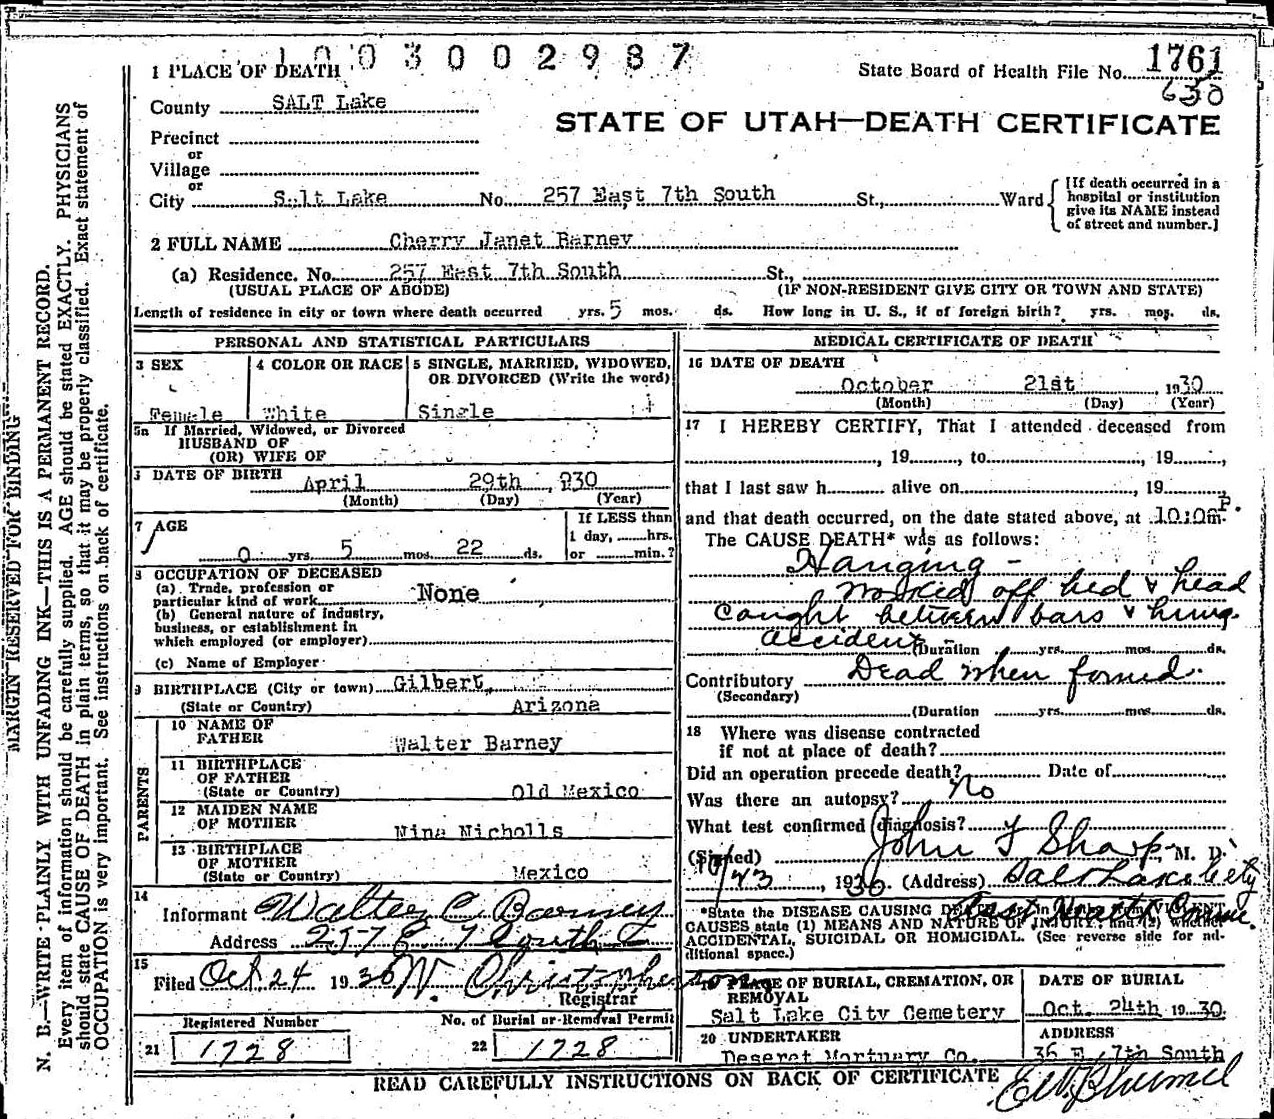 1003002987
1 PLACE OF DEATH
State Board of Health File No. 1761
630
County SALT Lake
STATE OF UTAH—DEATH CERTIFICATE
Precinct
or
Village
or
City Salt Lake No. 257 East 7th South St., Ward
[If death occurred in a hospital or institution give its NAME instead of street and number.]
2 FULL NAME Cherry Janet Barney
(a) Residence. No. 257 East 7th South St.,
(USUAL PLACE OF ABODE) (IF NON-RESIDENT GIVE CITY OR TOWN AND STATE)
Length of residence in city or town where death occurred yrs. 5 mos. ds. How long in U. S., if of foreign birth? yrs. mos. ds.
PERSONAL AND STATISTICAL PARTICULARS
3 SEX
Female
4 COLOR OR RACE
White
5 SINGLE, MARRIED, WIDOWED,
OR DIVORCED (Write the word)
Single
5a If Married, Widowed, or Divorced
HUSBAND OF
(OR) WIFE OF
6 DATE OF BIRTH
April 29th, 930
(Month) (Day) (Year)
7 AGE
0 yrs. 5 mos. 22 ds.
If LESS than
1 day, hrs.
or min.?
8 OCCUPATION OF DECEASED
(a) Trade, profession or
particular kind of work None
(b) General nature of industry,
business, or establishment in
which employed (or employer)
(c) Name of Employer
9 BIRTHPLACE (City or town) Gilbert,
(State or Country) Arizona
PARENTS
10 NAME OF
FATHER Walter Barney
11 BIRTHPLACE
OF FATHER
(State or Country) Old Mexico
12 MAIDEN NAME
OF MOTHER Nina Nicholls
13 BIRTHPLACE
OF MOTHER
(State or Country) Mexico
14
Informant Walter C Barney
Address 257 E. 7 South
15
Filed Oct. 24 1930 W. Christopherson
Registrar
Registered Number
21 1728
No. of Burial or Removal Permit
22 1728
MEDICAL CERTIFICATE OF DEATH
16 DATE OF DEATH
October 21st 1930
(Month) (Day) (Year)
17 I HEREBY CERTIFY, That I attended deceased from
, 19 , to , 19 ,
that I last saw h alive on , 19
and that death occurred, on the date stated above, at 10:00 P.m.
The CAUSE DEATH* was as follows:
Hanging -
worked off bed & head
caught between bars & hung.
accident
(Duration yrs. mos. ds.
Contributory Dead when found.
(Secondary)
(Duration yrs. mos. ds.
18 Where was disease contracted
if not at place of death?
Did an operation precede death? Date of
Was there an autopsy? No
What test confirmed diagnosis?
(Signed) John F Sharp, M. D.
10/23, 1930. (Address) Salt Lake City
Health
*State the DISEASE CAUSING DEATH, or in deaths from VIOLENT
CAUSES state (1) MEANS AND NATURE OF INJURY; and (2) whether
ACCIDENTAL, SUICIDAL OR HOMICIDAL. (See reverse side for additional space.)
19 PLACE OF BURIAL, CREMATION, OR
REMOVAL
Salt Lake City Cemetery
DATE OF BURIAL
Oct. 24th 1930.
20 UNDERTAKER
Deseret Mortuary Co.
ADDRESS
36 E. 7th South
READ CAREFULLY INSTRUCTIONS ON BACK OF CERTIFICATE
MARGIN RESERVED FOR BINDING
N. B.—WRITE PLAINLY WITH UNFADING INK—THIS IS A PERMANENT RECORD.
Every item of information should be carefully supplied. AGE should be stated EXACTLY. PHYSICIANS
should state CAUSE OF DEATH in plain terms, so that it may be properly classified. Exact statement of
OCCUPATION is very important. See instructions on back of certificate.